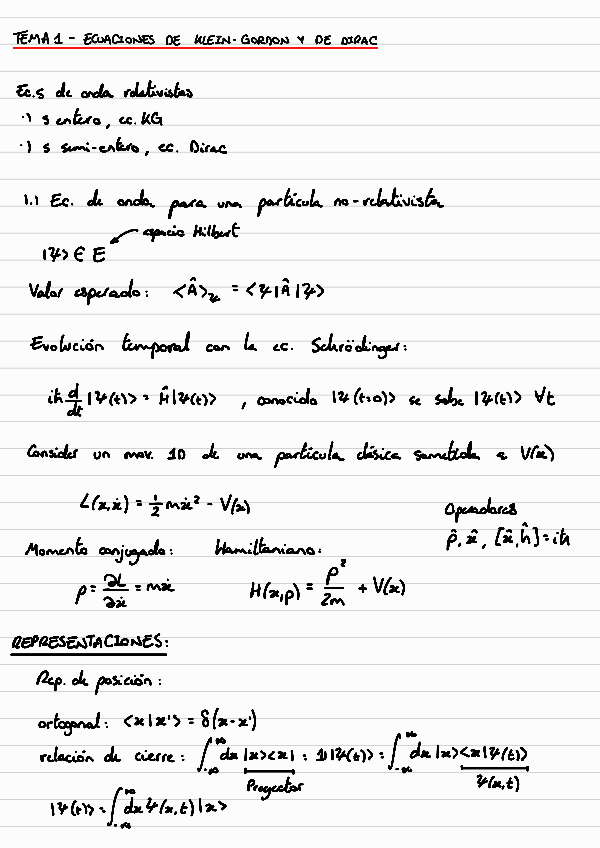 TEMA 1 - ECUACIONES DE KLEIN-GORDON Y DE DIRAC
Ec.s de onda relativistas
·) s entero, ec. KG
·) s semi-entero, ec. Dirac
1.1 Ec. de onda para una partícula no-relativista
espacio Hilbert
|ψ> ∈ E
Valor esperado: <Â>_ψ = <ψ|Â|ψ>
Evolución temporal con la ec. Schrödinger:
iħ d/dt |ψ(t)> = Ĥ|ψ(t)> , conocido |ψ(t=0)> se sabe |ψ(t)> ∀t
Consider un mov. 1D de una partícula clásica sometida a V(x)
L(x,ẋ) = 1/2 mẋ² - V(x)
Operadores
p̂, x̂, [x̂,ĥ] = iħ
Momento conjugado: Hamiltoniano:
p = ∂L/∂ẋ = mẋ H(x,p) = p²/2m + V(x)
REPRESENTACIONES:
Rep. de posición:
ortogonal: <x|x'> = δ(x-x')
relación de cierre: ∫_{-∞}^{∞} dx |x><x| = 𝟙|ψ(t)> = ∫_{-∞}^{∞} dx |x><x|ψ(t)>
Proyector ψ(x,t)
|ψ(t)> = ∫_{-∞}^{∞} dx ψ(x,t) |x>